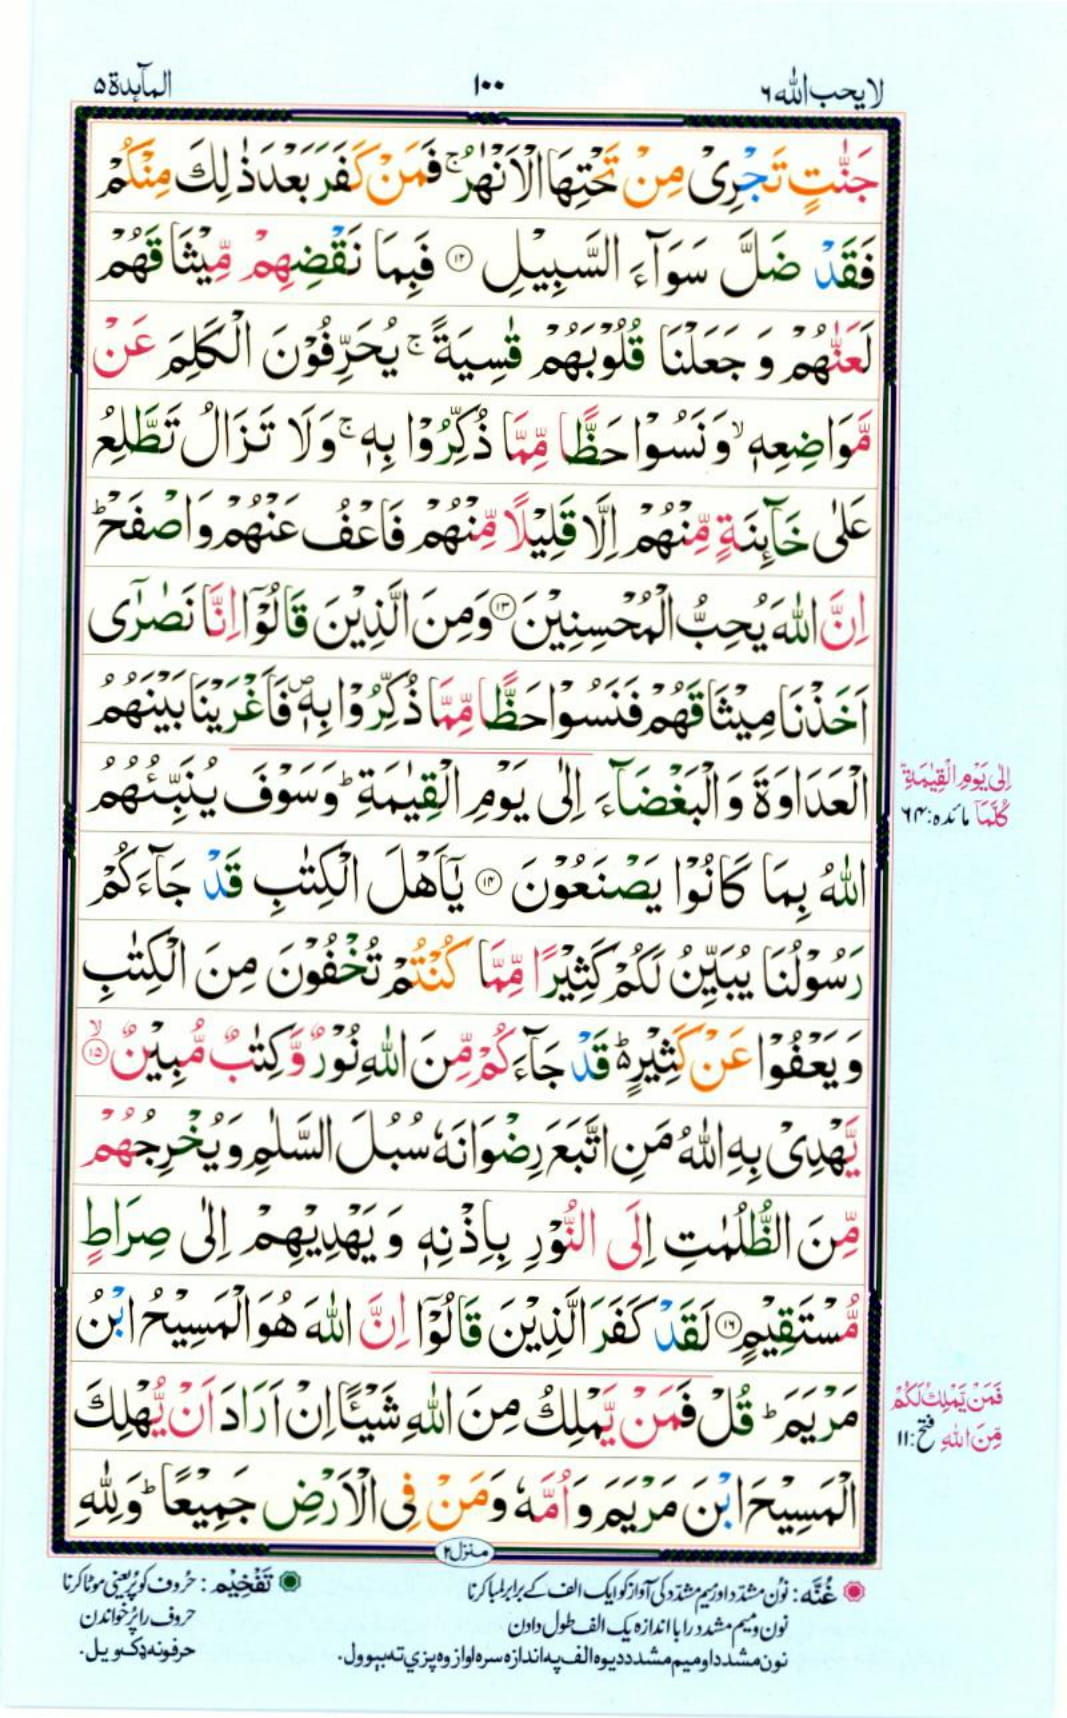 لا يحب الله ۶
۱۰۰
المآىِٕدة ۵
جَنّٰتٍ تَجْرِیْ مِنْ تَحْتِهَا الْاَنْهٰرُ ۚ فَمَنْ كَفَرَ بَعْدَ ذٰلِكَ مِنْكُمْ
فَقَدْ ضَلَّ سَوَآءَ السَّبِیْلِ ۝۱۲ فَبِمَا نَقْضِهِمْ مِّیْثَاقَهُمْ
لَعَنّٰهُمْ وَ جَعَلْنَا قُلُوْبَهُمْ قٰسِیَةً ۚ یُحَرِّفُوْنَ الْكَلِمَ عَنْ
مَّوَاضِعِهٖ ۙ وَ نَسُوْا حَظًّا مِّمَّا ذُكِّرُوْا بِهٖ ۚ وَ لَا تَزَالُ تَطَّلِعُ
عَلٰی خَآىِٕنَةٍ مِّنْهُمْ اِلَّا قَلِیْلًا مِّنْهُمْ فَاعْفُ عَنْهُمْ وَ اصْفَحْ ؕ
اِنَّ اللّٰهَ یُحِبُّ الْمُحْسِنِیْنَ ۝۱۳ وَ مِنَ الَّذِیْنَ قَالُوْۤا اِنَّا نَصٰرٰۤی
اَخَذْنَا مِیْثَاقَهُمْ فَنَسُوْا حَظًّا مِّمَّا ذُكِّرُوْا بِهٖ ۪ فَاَغْرَیْنَا بَیْنَهُمُ
الْعَدَاوَةَ وَ الْبَغْضَآءَ اِلٰی یَوْمِ الْقِیٰمَةِ ؕ وَ سَوْفَ یُنَبِّئُهُمُ
اللّٰهُ بِمَا كَانُوْا یَصْنَعُوْنَ ۝۱۴ یٰۤاَهْلَ الْكِتٰبِ قَدْ جَآءَكُمْ
رَسُوْلُنَا یُبَیِّنُ لَكُمْ كَثِیْرًا مِّمَّا كُنْتُمْ تُخْفُوْنَ مِنَ الْكِتٰبِ
وَ یَعْفُوْا عَنْ كَثِیْرٍ ؕ۬ قَدْ جَآءَكُمْ مِّنَ اللّٰهِ نُوْرٌ وَّ كِتٰبٌ مُّبِیْنٌ ۝۱۵ۙ
یَّهْدِیْ بِهِ اللّٰهُ مَنِ اتَّبَعَ رِضْوَانَهٗ سُبُلَ السَّلٰمِ وَ یُخْرِجُهُمْ
مِّنَ الظُّلُمٰتِ اِلَی النُّوْرِ بِاِذْنِهٖ وَ یَهْدِیْهِمْ اِلٰی صِرَاطٍ
مُّسْتَقِیْمٍ ۝۱۶ لَقَدْ كَفَرَ الَّذِیْنَ قَالُوْۤا اِنَّ اللّٰهَ هُوَ الْمَسِیْحُ ابْنُ
مَرْیَمَ ؕ قُلْ فَمَنْ یَّمْلِكُ مِنَ اللّٰهِ شَیْـًٔا اِنْ اَرَادَ اَنْ یُّهْلِكَ
الْمَسِیْحَ ابْنَ مَرْیَمَ وَ اُمَّهٗ وَ مَنْ فِی الْاَرْضِ جَمِیْعًا ؕ وَ لِلّٰهِ
اِلٰی یَوْمِ الْقِیٰمَةِ ؕ
كُلَّمَاۤ مائده: ۶۴
فَمَنْ یَّمْلِكُ لَكُمْ
مِّنَ اللّٰهِ فتح: ۱۱
منزل ۲
غُنَّه: نوُن مشدّد اور میم مشدّد کی آواز کو ایک الف کے برابر لمبا کرنا
نون و میم مشدد را با اندازه یک الف طول دادن
نون مشدد او میم مشدد دیوه الف په اندازه سره اواز وه پزي ته بيوول.
تَفْخِیْم: حُروف کو پُر یعنی موٹا کرنا
حروف را پُر خواندن
حرفونه ډک ویل.